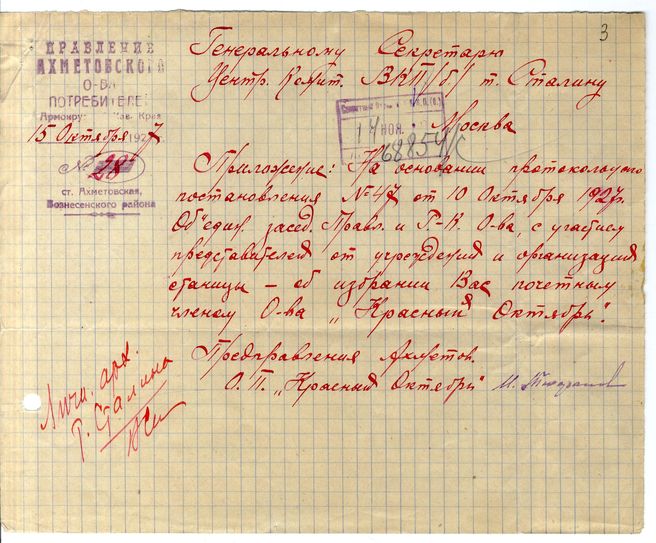 3
ПРАВЛЕНИЕ
АХМЕТОВСКОГО
О-ВА
ПОТРЕБИТЕЛЕЙ
Армавир Кав. Края
15 Октября 1927
№ 28
ст. Ахметовская,
Вознесенского района
Генеральному Секретарю
Центр. Комит. ВКП/б/ т. Сталину
14 НОЯ.
68854/с
Москва
Приложение: На основании протокольного
постановления №47 от 10 Октября 1927г.
Об"един. засед. Правл. и Р.-К. О-ва, с участием
представителей от учреждений и организаций
станицы – об избрании Вас почетным
членом О-ва „Красный Октябрь".
Предправления Ахметов.
О.П. „Красный Октябрь"
Личн. арх.
Т. Сталина